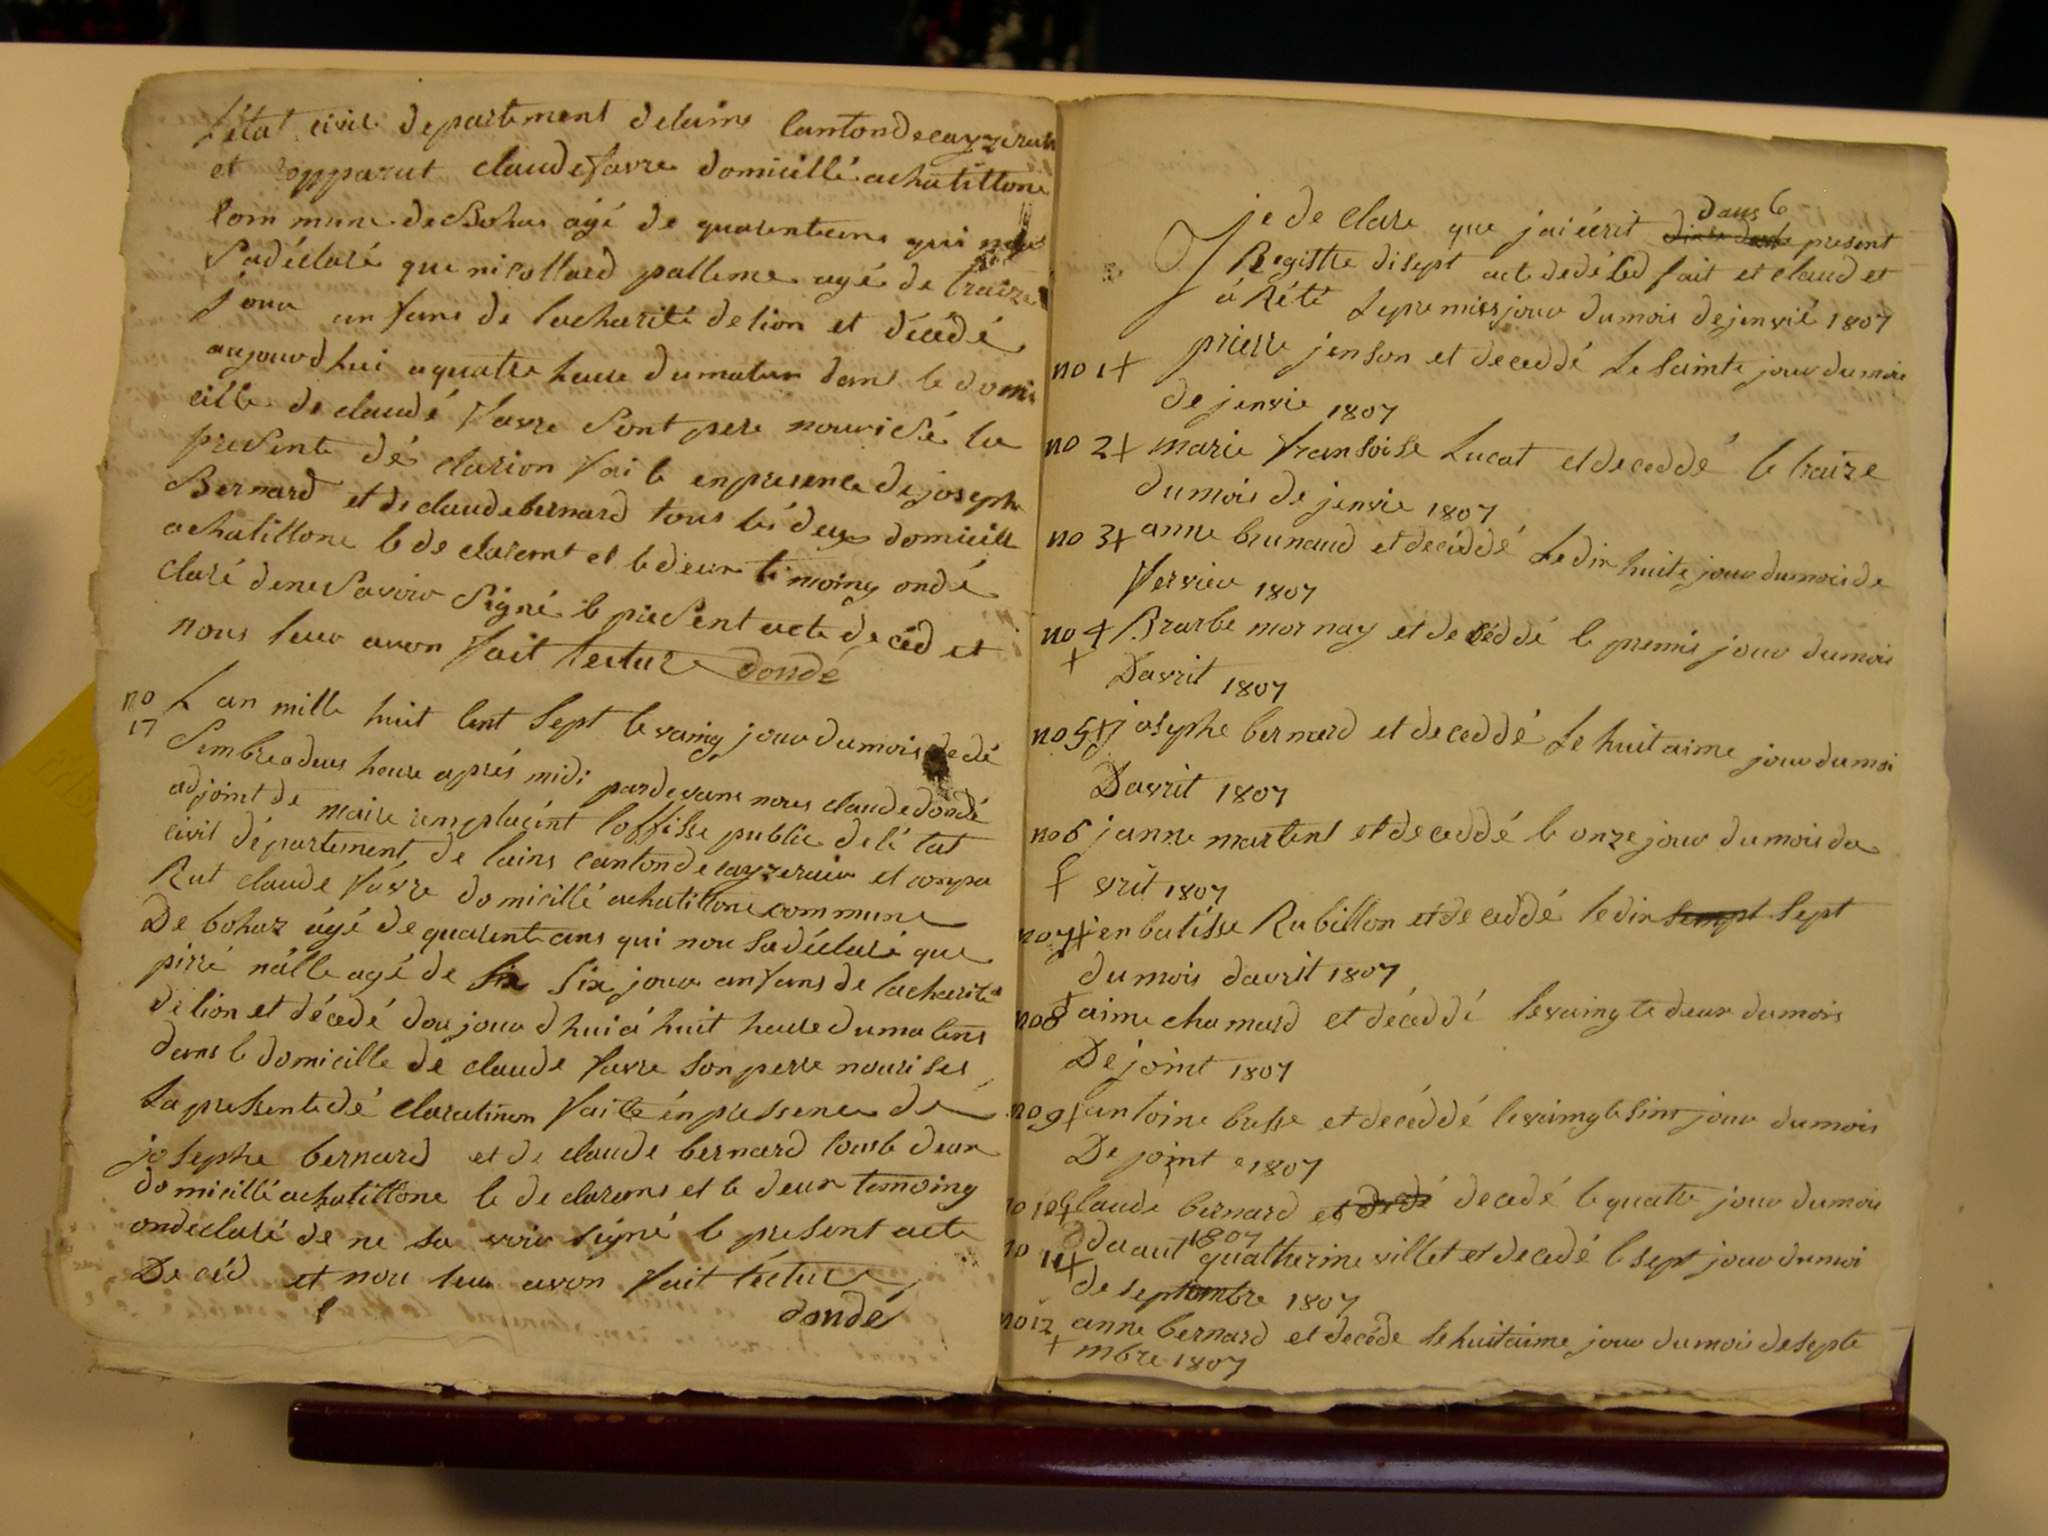 l'état civil departement delains Canton de cayzeriat
et conpparut claude favre domicillé achatillone
Commune de Bohas agé de quarenteans qui nou
Sadéclaré que nicollaed palleme agé de traize
jour anfans de lacharité de lion et décédé
aujourdhui aquatre heure dumatin dans le domi
cille de claudé favre Sont pere nouricié la
presente dé clarion faite enpresence de joseph
Bernard et de claude bernard tous lés deux domicille
achatillone le de clarant et le deux temoing ondé
claré denesavoir Signé le presentacte de céd et
nous leur avon fait lecture dondé
no 17 L an mille huit Cent Sept le vaing jour dumois de dé
Sembre a deux heure aprés midi pardevans nous claude dondé
adjoint de maire remplacént loffisse public de lé tat
civil département de lains canton de cayzeriat et conpa
Rut claude favre domicillé achatillone commune
De bohaz agé de quarent ans qui nou Sadéclaré que
pirré nâlle agé de six jour anfans de lacharité
de lion et décedé dou jour dhui a huit heure dumatins
dans le domicille de claude favre Son perre nourises
La presente dé claratinon faite én pressence de
josephe bernard et de claude bernard tous le deux
domicillé achatillone le declarans et le deux temoing
ondeclaré de ne sa voir Signé le present acte
De céd et nou leur avon fait lécture
dondé
je de clare que jai écrit dans le present
Registre disept acte dedé céd fait et claud et
a Rété Le premier jour dumois de jenvié 1807
no 1+ pierre janson et deceddé Le Sainte jour dumoi
de jenvie 1807
no 2+ marie fransoise Lucat et deceddé le traize
dumois de jenvie 1807
no 3+ anne brunaud et decéddé Le dix huite jour dumois de
fervier 1807
no 4 + Brarbe mornay et de céddé le premié jour dumois
Davrit 1807
no 5+ josephe bernard et deceddé Le huitaime jour dumoi
Davrit 1807
no 6 + janne martent et deceddé le onze jour dumois da
vrit 1807
no 7+ jenbatisse Rubillon et deceddé le dix sept
dumois davrit 1807
no 8+ aime chamard et décéddé levaingtedeux dumois
De joint 1807
no 9+ antoine bresse et decéddé le vaingtesint jour dumois
De joint 1807
no 10+ Claude bernard decedé le quatre jour dumois
daaut 1807
no 11+ quatherine villet et decedé le sept jour dumoi
de septembre 1807
no 12 + anne bernard et decéde le huitaime jour dumois desepte
mbre 1807